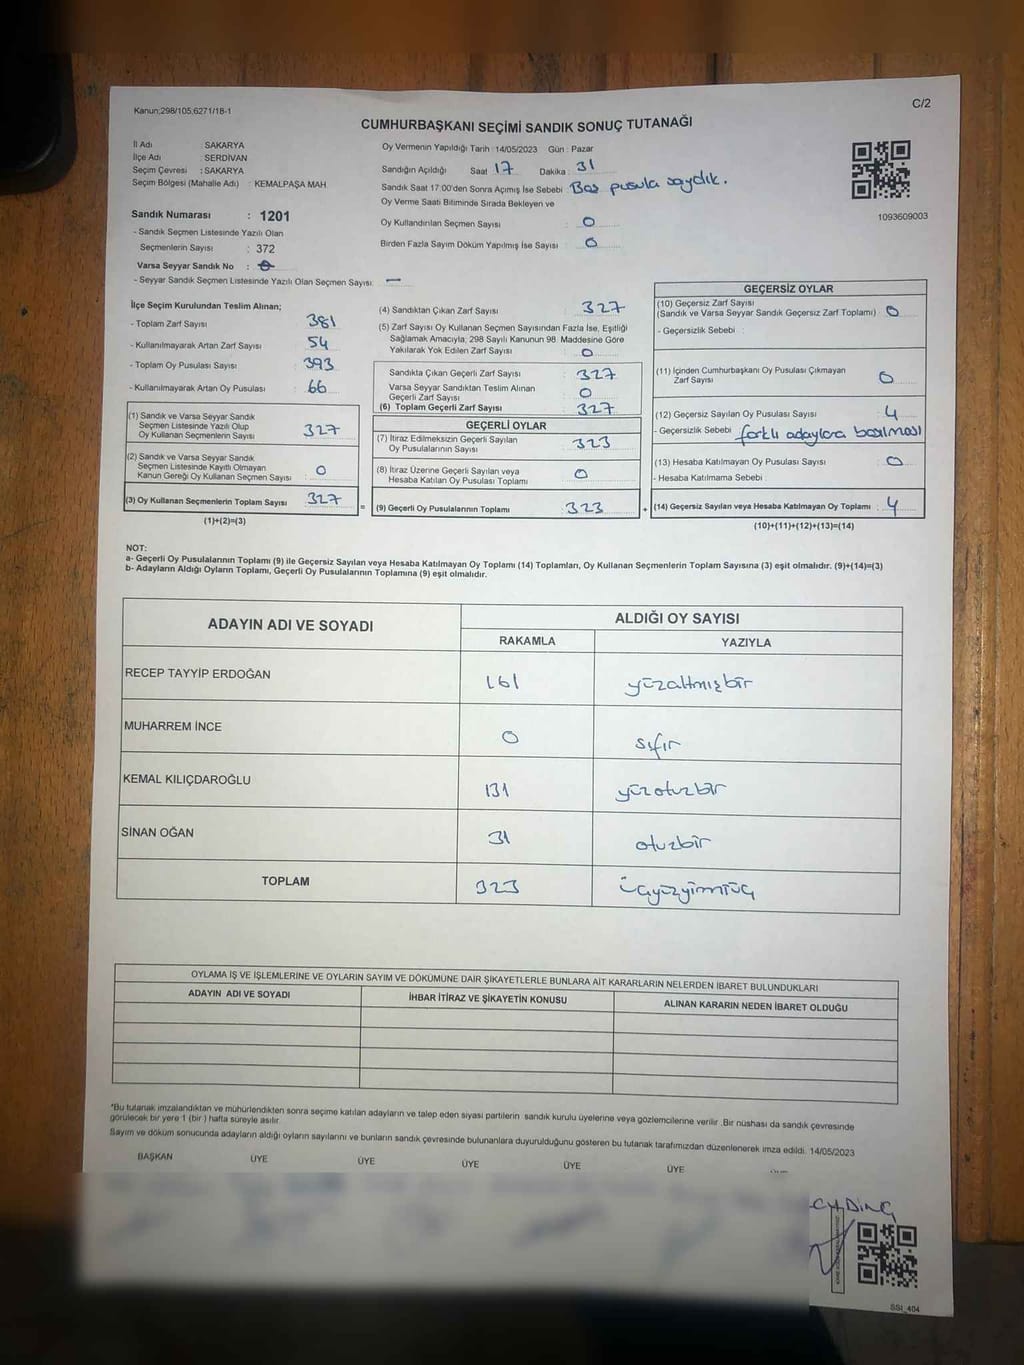 Kanun;298/105;6271/18-1
C/2
CUMHURBAŞKANI SEÇİMİ SANDIK SONUÇ TUTANAĞI
İl Adı : SAKARYA
İlçe Adı : SERDİVAN
Seçim Çevresi : SAKARYA
Seçim Bölgesi (Mahalle Adı) : KEMALPAŞA MAH
Sandık Numarası : 1201
- Sandık Seçmen Listesinde Yazılı Olan
Seçmenlerin Sayısı : 372
Varsa Seyyar Sandık No : 0
- Seyyar Sandık Seçmen Listesinde Yazılı Olan Seçmen Sayısı: —
Oy Vermenin Yapıldığı Tarih :14/05/2023 Gün : Pazar
Sandığın Açıldığı Saat 17 Dakika : 31
Sandık Saat 17:00'den Sonra Açımış İse Sebebi : Boş pusula saydık.
Oy Verme Saati Bitiminde Sırada Bekleyen ve
Oy Kullandırılan Seçmen Sayısı : 0
Birden Fazla Sayım Döküm Yapılmış İse Sayısı : 0
1093609003
İlçe Seçim Kurulundan Teslim Alınan;
- Toplam Zarf Sayısı : 381
- Kullanılmayarak Artan Zarf Sayısı : 54
- Toplam Oy Pusulası Sayısı : 393
- Kullanılmayarak Artan Oy Pusulası : 66
(1) Sandık ve Varsa Seyyar Sandık
Seçmen Listesinde Yazılı Olup
Oy Kullanan Seçmenlerin Sayısı : 327
(2) Sandık ve Varsa Seyyar Sandık
Seçmen Listesinde Kayıtlı Olmayan
Kanun Gereği Oy Kullanan Seçmen Sayısı : 0
(3) Oy Kullanan Seçmenlerin Toplam Sayısı : 327
(1)+(2)=(3)
=
(4) Sandıktan Çıkan Zarf Sayısı : 327
(5) Zarf Sayısı Oy Kullanan Seçmen Sayısından Fazla İse, Eşitliği
Sağlamak Amacıyla; 298 Sayılı Kanunun 98. Maddesine Göre
Yakılarak Yok Edilen Zarf Sayısı : 0
Sandıkta Çıkan Geçerli Zarf Sayısı : 327
Varsa Seyyar Sandıktan Teslim Alınan
Geçerli Zarf Sayısı : 0
(6) Toplam Geçerli Zarf Sayısı : 327
GEÇERLİ OYLAR
(7) İtiraz Edilmeksizin Geçerli Sayılan
Oy Pusulalarının Sayısı : 323
(8) İtiraz Üzerine Geçerli Sayılan veya
Hesaba Katılan Oy Pusulası Toplamı : 0
(9) Geçerli Oy Pusulalarının Toplamı : 323
+
GEÇERSİZ OYLAR
(10) Geçersiz Zarf Sayısı
(Sandık ve Varsa Seyyar Sandık Geçersiz Zarf Toplamı) : 0
- Geçersizlik Sebebi :
(11) İçinden Cumhurbaşkanı Oy Pusulası Çıkmayan
Zarf Sayısı : 0
(12) Geçersiz Sayılan Oy Pusulası Sayısı : 4
- Geçersizlik Sebebi : farklı adaylara basılması
(13) Hesaba Katılmayan Oy Pusulası Sayısı : 0
- Hesaba Katılmama Sebebi :
(14) Geçersiz Sayılan veya Hesaba Katılmayan Oy Toplamı : 4
(10)+(11)+(12)+(13)=(14)
NOT:
a- Geçerli Oy Pusulalarının Toplamı (9) ile Geçersiz Sayılan veya Hesaba Katılmayan Oy Toplamı (14) Toplamları, Oy Kullanan Seçmenlerin Toplam Sayısına (3) eşit olmalıdır. (9)+(14)=(3)
b- Adayların Aldığı Oyların Toplamı, Geçerli Oy Pusulalarının Toplamına (9) eşit olmalıdır.
ADAYIN ADI VE SOYADI
ALDIĞI OY SAYISI
RAKAMLA YAZIYLA
RECEP TAYYİP ERDOĞAN 161 yüzaltmışbir
MUHARREM İNCE 0 sıfır
KEMAL KILIÇDAROĞLU 131 yüzotuzbir
SİNAN OĞAN 31 otuzbir
TOPLAM 323 üçyüzyirmiüç
OYLAMA İŞ VE İŞLEMLERİNE VE OYLARIN SAYIM VE DÖKÜMÜNE DAİR ŞİKAYETLERLE BUNLARA AİT KARARLARIN NELERDEN İBARET BULUNDUKLARI
ADAYIN ADI VE SOYADI İHBAR İTİRAZ VE ŞİKAYETİN KONUSU ALINAN KARARIN NEDEN İBARET OLDUĞU
*Bu tutanak imzalandıktan ve mühürlendikten sonra seçime katılan adayların ve talep eden siyasi partilerin sandık kurulu üyelerine veya gözlemcilerine verilir .Bir nüshası da sandık çevresinde
görülecek bir yere 1 (bir ) hafta süreyle asılır.
Sayım ve döküm sonucunda adayların aldığı oyların sayılarını ve bunların sandık çevresinde bulunanlara duyurulduğunu gösteren bu tutanak tarafımızdan düzenlenerek imza edildi. 14/05/2023
BAŞKAN ÜYE ÜYE ÜYE ÜYE ÜYE
SSI_404